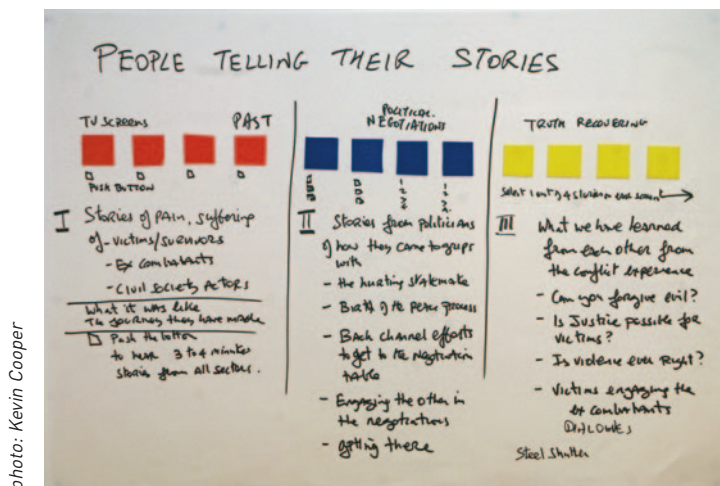 PEOPLE TELLING THEIR STORIES
TV SCREENS PAST
PUSH BUTTON
I Stories of PAIN, suffering
of - victims/survivors
- Ex combatants
- Civil Society Actors
What it was like
The journey they have made
Push the button
to hear 3 to 4 minutes
stories from all sectors.
POLITICAL
NEGOTIATIONS
II Stories from politicians
of how they came to grips
with
- the hurting stalemate
- Birth of the peace process
- Back channel efforts
to get to the negotiation
table
- Engaging the other in
the negotiations
- getting there
TRUTH RECOVERING
Select 1 out of 4 stories on each screen
III What we have learned
from each other from
the conflict experience
- Can you forgive evil?
- Is Justice possible for
victims?
- Is violence ever Right?
- Victims engaging the
ex combatants
DIALOGUES
Steel Shutter
photo: Kevin Cooper